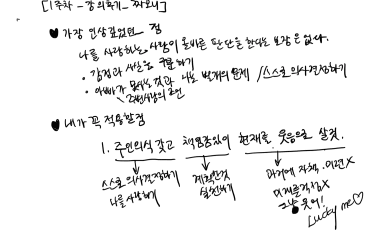 [1주차 - 강의후기 - 짜오니]
♥ 가장 인상깊었던 점
나를 사랑하는 사람이 올바른 판단을 한다는 보장은 없다.
• 감정과 사실을 구분하기
• 아빠가 못사는 것과 나는 별개의 문제 / 스스로 의사결정하기
주변사람의 조언
♥ 내가 꼭 적용할점
1. 주인의식 갖고 책임감있게 현재를 웃음으로 살것.
스스로 의사결정하기
나를 사랑하기
계획한것
실천하기
과거에 자책, 미련 X
미래를 걱정 X
그냥 웃어!
Lucky me ♡